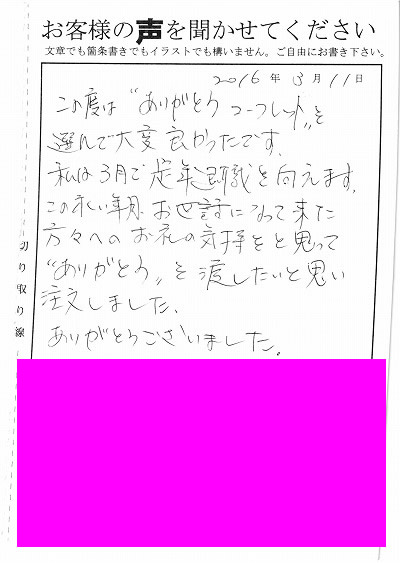 お客様の声を聞かせてください
文章でも箇条書きでもイラストでも構いません。ご自由にお書き下さい。
2016年3月11日
この度は〝ありがとうゴーフレット〟を
選んで大変良かったです。
私は3月で定年退職を向えます。
この永い年月お世話になって来た
方々へのお礼の気持をと思って
〝ありがとう〟を渡したいと思い
注文しました。
ありがとうございました。
切り取り線